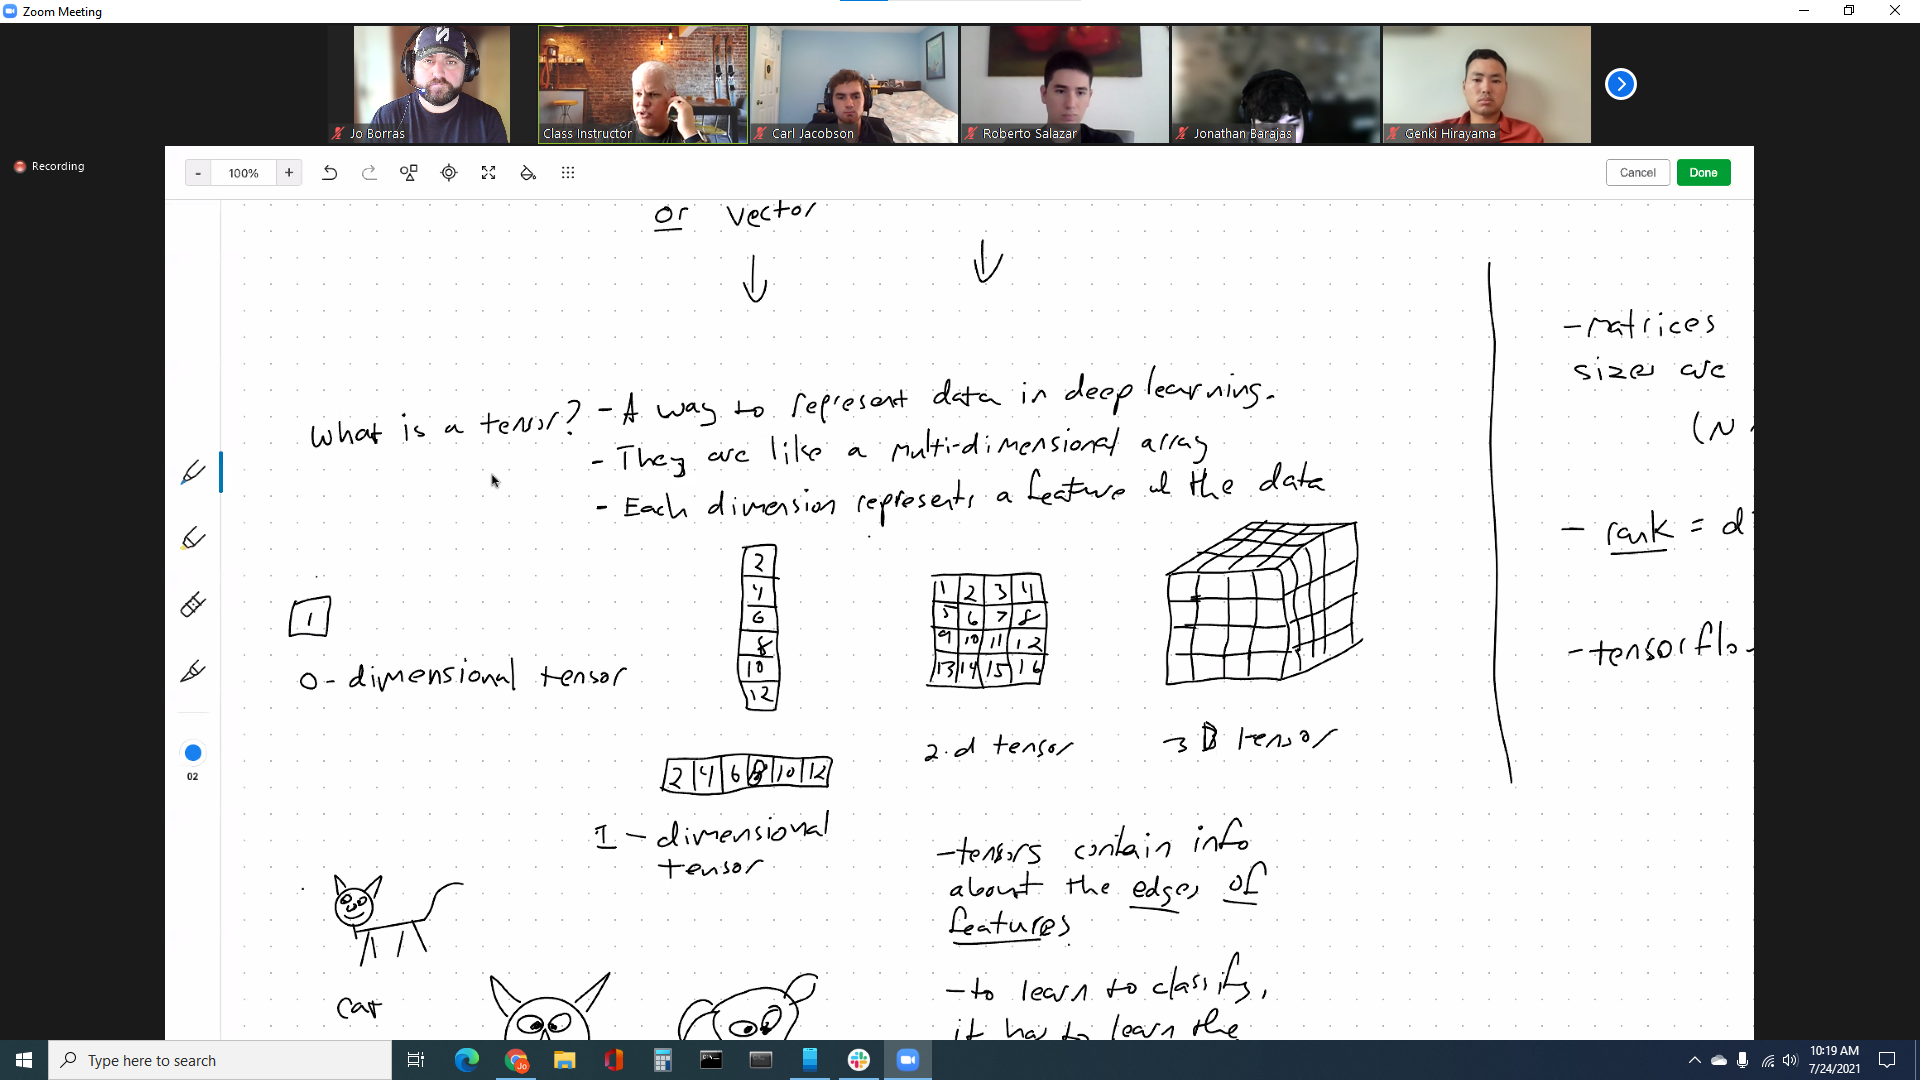 Zoom Meeting
Jo Borras
Class Instructor
Carl Jacobson
Roberto Salazar
Jonathan Barajas
Genki Hirayama
Recording
- 100% +
Cancel
Done
or vector
What is a tensor?
- A way to represent data in deep learning.
- They are like a multi-dimensional array
- Each dimension represents a feature of the data
1
0-dimensional tensor
2
4
6
8
10
12
2 4 6 8 10 12
1-dimensional
tensor
1 2 3 4
5 6 7 8
9 10 11 12
13 14 15 16
2-d tensor
3D tensor
- matrices
sizes are
(N
- rank = d
- tensorflo
- tensors contain info
about the edges of
features.
- to learn to classify,
it has to learn the
cat
02
Type here to search
10:19 AM
7/24/2021